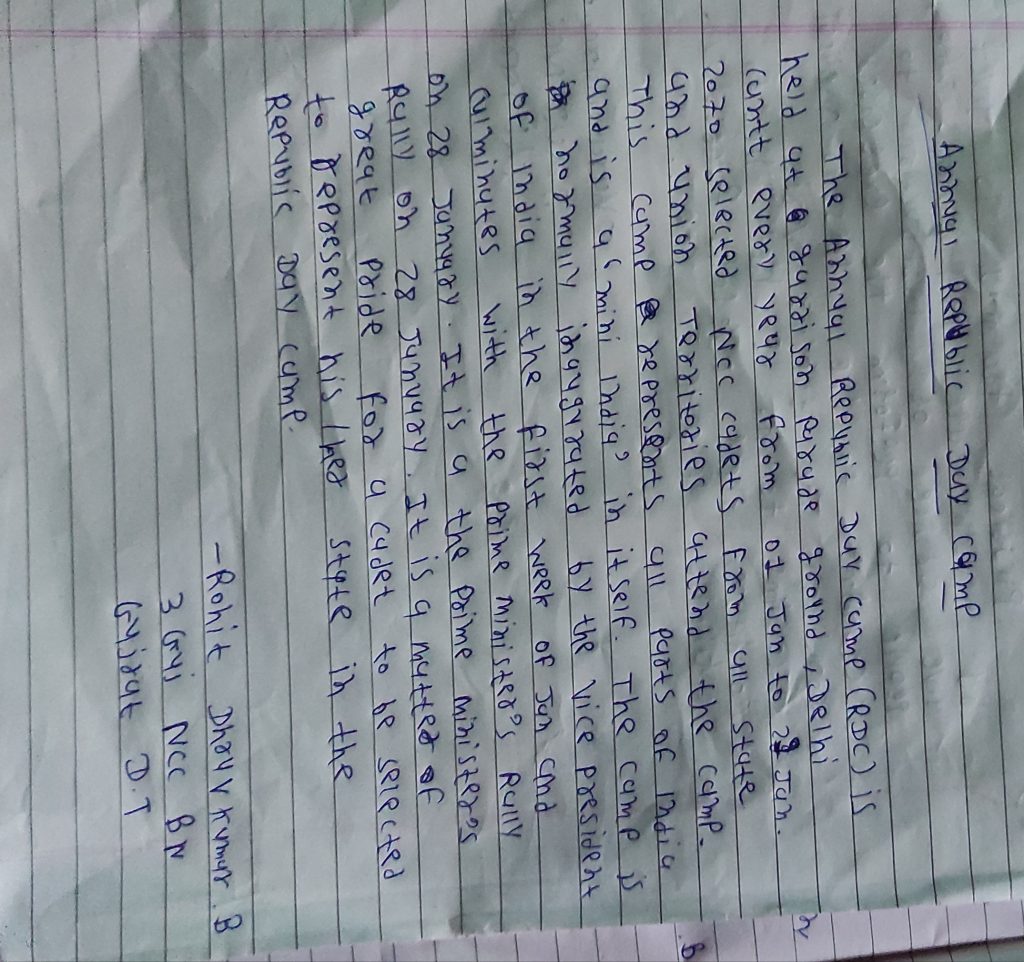 Annual Republic Day Camp
The Annual Republic Day Camp (RDC) is
held at garrison parade ground, Delhi
cantt every year from 01 Jan to 29 Jan.
2070 selected Ncc cadets from all state
and union Territories attend the camp.
This camp represents all parts of India
and is a 'mini India' in itself. The camp is
normally inaugurated by the vice president
of India in the first week of Jan and
culminates with the prime minister's Rally
on 28 January. It is a the prime minister's
Rally on 28 January. It is a matter of
great pride for a cadet to be selected
to represent his/her state in the
Republic Day camp.
- Rohit Dhruvkumar. B
3 Guj NCC BN
Gujrat D.T